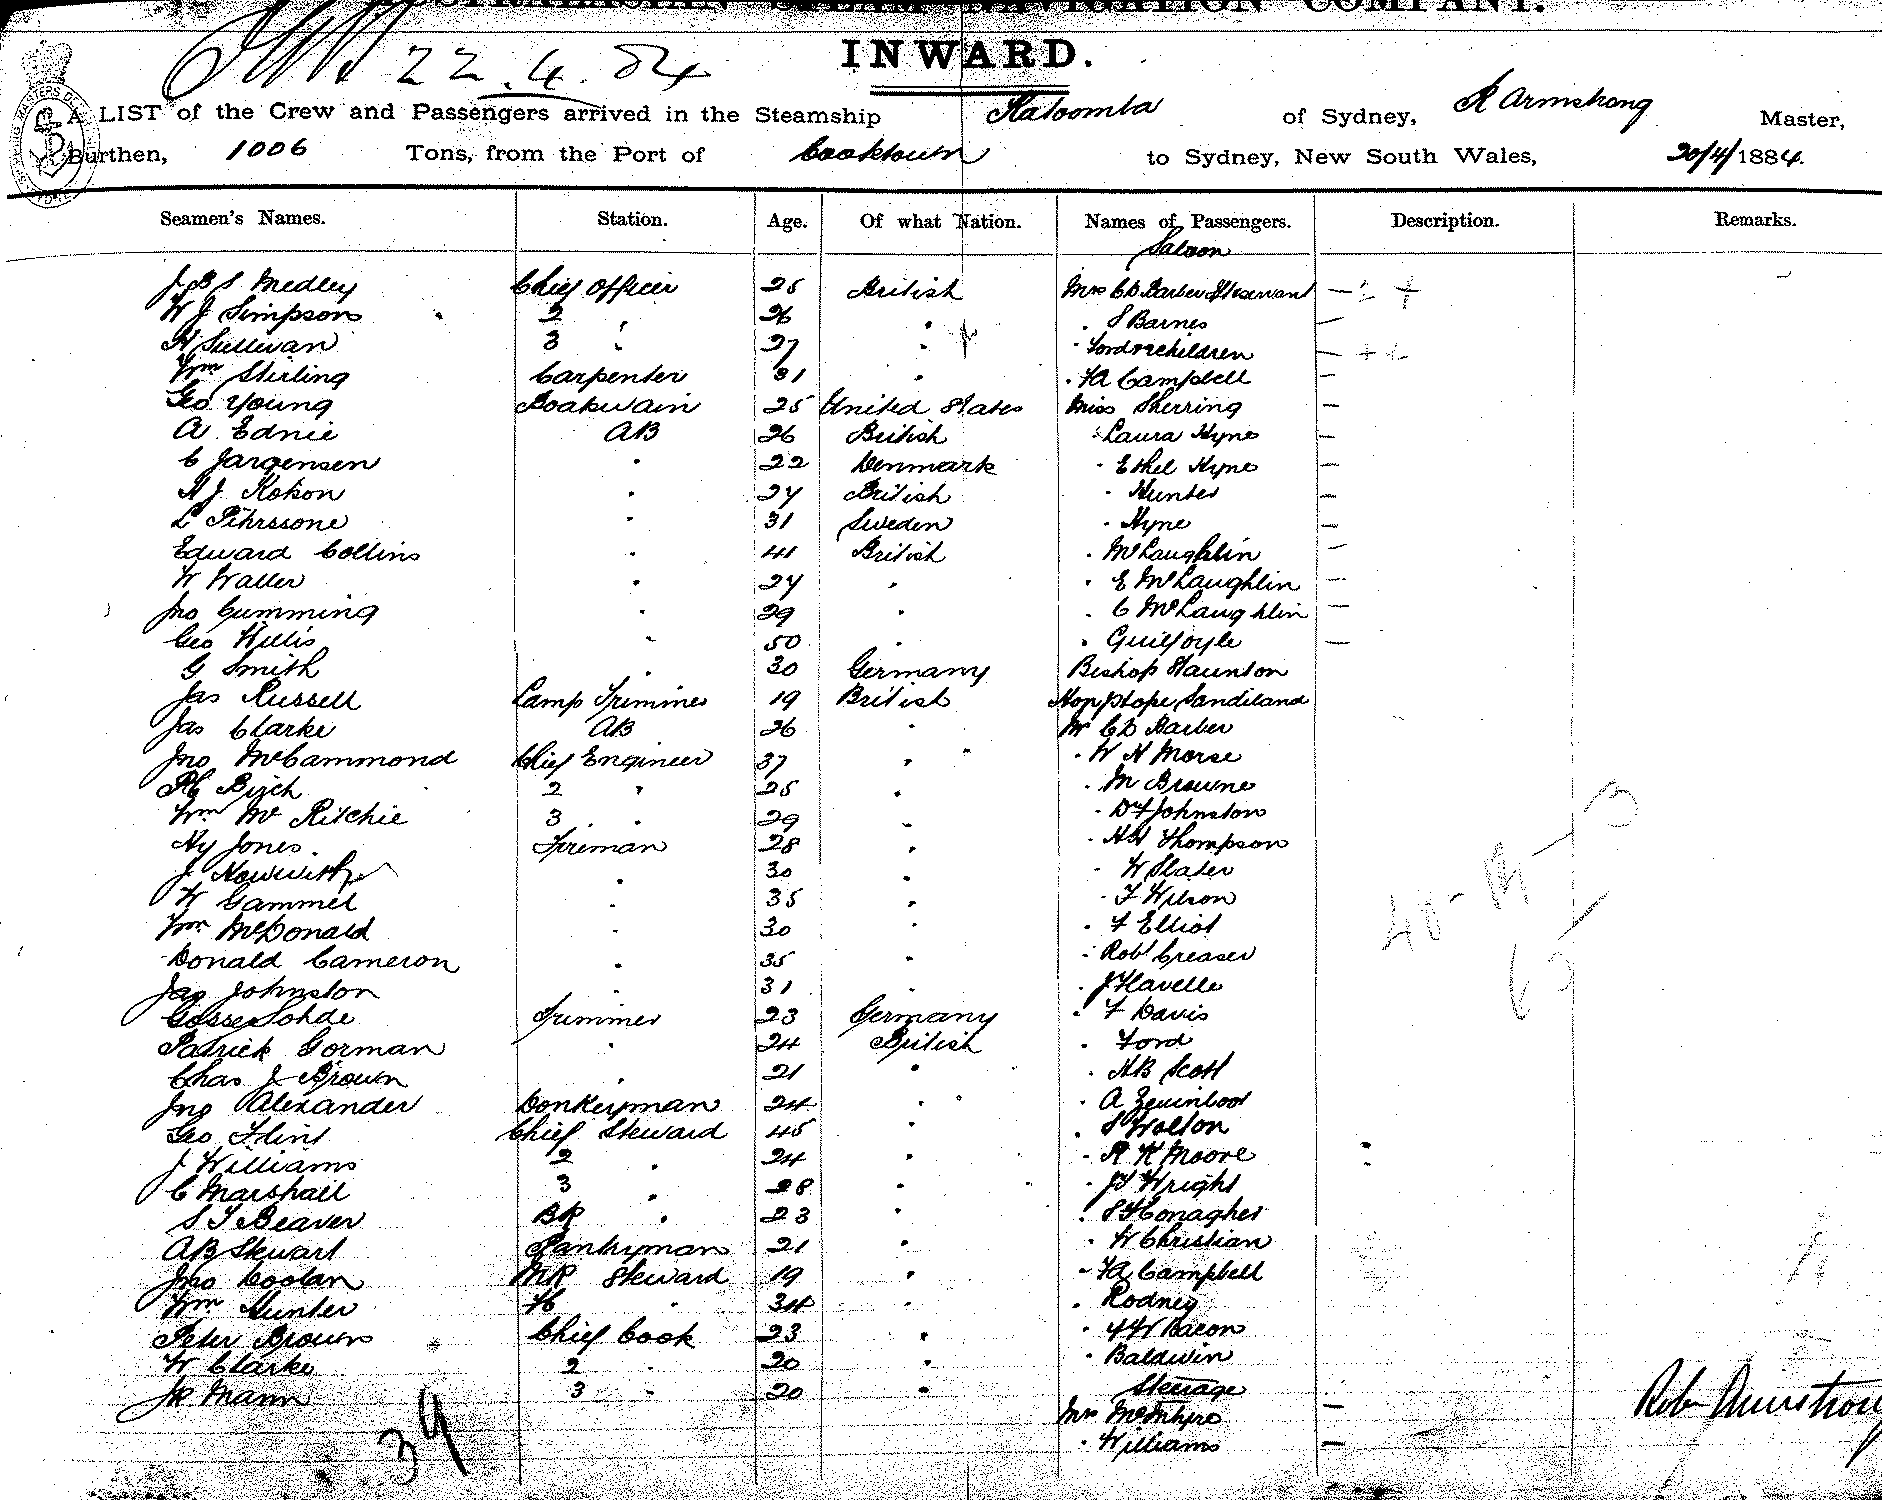 STEAM NAVIGATION COMPANY.
INWARD.
22.4.84
A LIST of the Crew and Passengers arrived in the Steamship Katoomba of Sydney, R Armstrong Master,
Burthen, 1006 Tons, from the Port of Cooktown to Sydney, New South Wales, 20/4/1884.
Seamen's Names. Station. Age. Of what Nation. Names of Passengers. Description. Remarks.
Saloon
J B S Medley Chief Officer 25 British Mrs C D Barber & servant
W J Simpson 2 " 26 " " S Barnes
H Sullivan 3 " 27 " " Ford & children
Wm Stirling Carpenter 31 " " F A Campbell
Geo Young Boatswain 25 United States Miss Sherring
A Ednie AB 26 British " Laura Hyne
C Jargensen " 22 Denmark " Ethel Hyne
H J Kokson " 24 British " Hunter
L Pihrssone " 31 Sweden " Hyne
Edward Collins " 41 British " McLaughlin
W Waller " 24 " " E McLaughlin
Jno Cumming " 29 " " C McLaughlin
Geo Willis " 50 " " Guilfoyle
G Smith " 30 Germany Bishop Staunton
Jas Russell Lamp Trimmer 19 British Sandiland
Jas Clarke AB 26 " Mr C D Barber
Jno McCammond Chief Engineer 37 " " W H Morse
Birch 2 " 25 " " M Browne
Wm Mc Ritchie 3 " 29 " " Johnston
Hy Jones Fireman 28 " " H H Thompson
J " 30 " " W Slader
W Gammel " 35 " " F Wilson
Wm McDonald " 30 " " F Elliot
Donald Cameron " 35 " " Robt Creaser
Jas Johnston " 31 " " J Flavelle
Trimmer 23 Germany " F Davis
Patrick Gorman " 24 British " Ford
Chas J Brown " 21 " " H B Scott
Jno Alexander Donkeyman 24 " " A
Geo Flint Chief Steward 45 " " S Wolton
J Williams 2 " 24 " " R K Moore
C Marshall 3 " 28 " " Wright
S T Beaver BR " 23 " "
A B Stewart Pantryman 21 " " W Christian
Jno Coolan MR Steward 19 " " F A Campbell
Wm Hunter " 34 " " Rodney
Peter Brown Chief Cook 23 " " Bacon
W Clarke 2 " 20 " " Baldwin
Mann 3 " 20 " Steerage
Mrs McIntyre
" Williams
39
Robt Armstrong